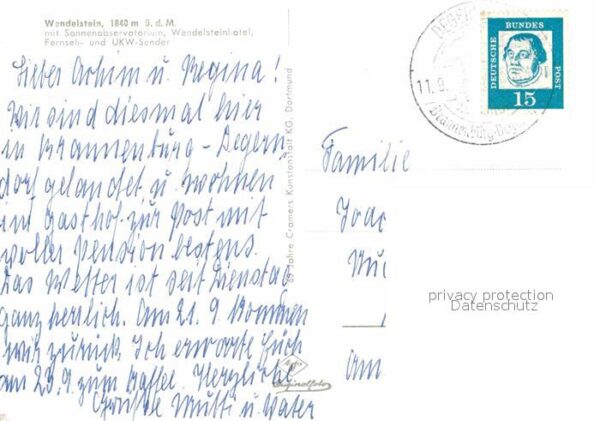 Wendelstein, 1840 m ü. d. M.
mit Sonnenobservatorium, Wendelsteinhotel,
Fernseh- und UKW-Sender
Lieber Achim u. Regina!
Wir sind diesmal hier
in Brannenburg-Degern
dorf gelandet u. wohnen
im Gasthof zur Post mit
voller Pension bestens.
Das Wetter ist seit Dienstag
ganz herrlich. Am 21. 9. kommen
wir zurück. Ich erwarte Euch
am 23. 9 zum Kaffee. Herzliche
Grüße Mutti u. Vater
69 Jahre Cramers Kunstanstalt KG, Dortmund
Originalfoto
DEGER
11. 9.
Brannenburg
DEUTSCHE
BUNDES
POST
15
Familie
Joac
Am
privacy protection
Datenschutz